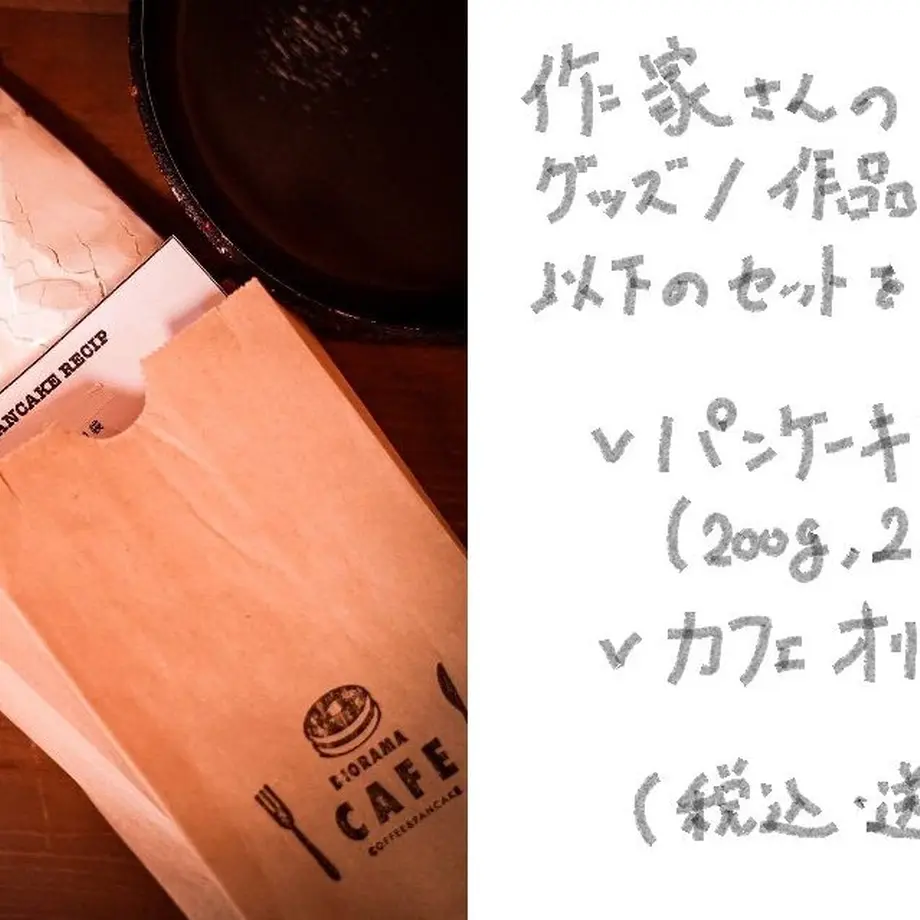 ANCAKE RECIP
1袋
BIORAMA
CAFE
COFFEE&PANCAKE
作家さんの
グッズ/作品
以下のセットを
✓パンケーキ
(200g,2
✓カフェオリ
(税込・送